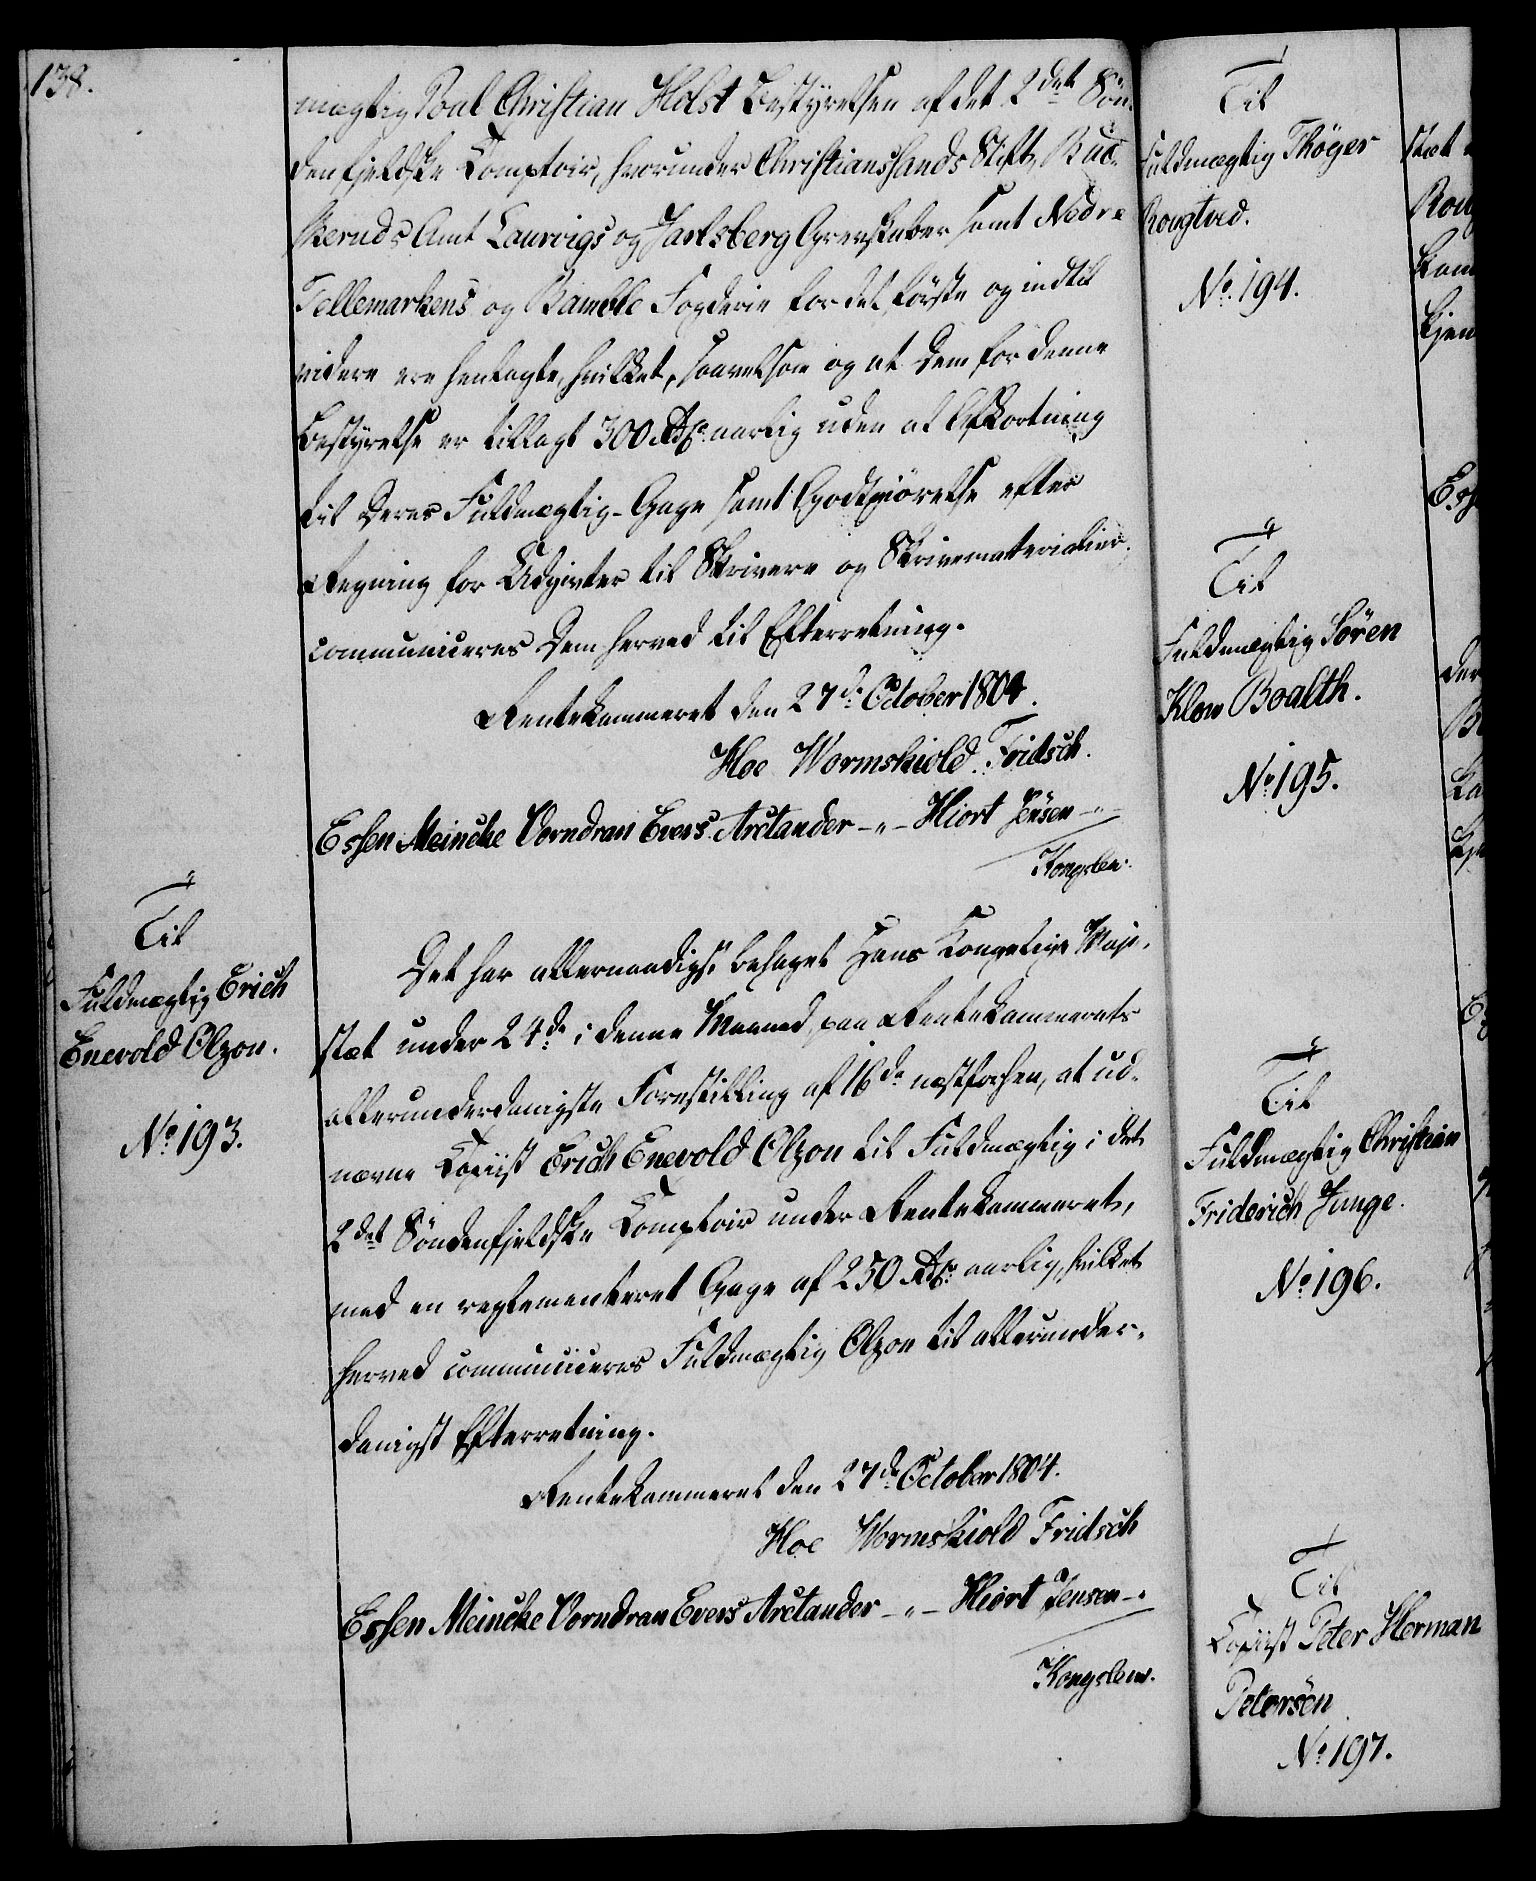 138.
mægtig Poul Christian Holst Bestyrelsen af det 2det Søn-
denfjeldske Comptoir, hvorunder Christianssands Stift, Bus-
keruds Amt Laurvigs og Jarlsberg Grevskaber samt Nedre
Tellemarkens og Bamble Fogderie for det første og indtil
videre ere henlagte, hvilket, saavelsom og at Dem for denne
Bestyrelse er tillagt 300 Rdr. aarlig uden al Afkortning
til Deres Fuldmægtig-Gage samt Godtgiørelse efter
Regning for Udgivter til Skrivere og Skrivematerialier
communiceres Dem herved til Efterretning.
Rentekammeret den 27de October 1804.
Hoe Wormskiold Fridsch.
Essen Meincke Vorndran Evers Arctander -"- Hiort Jensen -"-
Kongslew.
Til
Fuldmægtig Erich
Enevold Olzon.
No. 193.
Det har allernaadigst behaget Hans Kongelige Maje-
stæt under 24de i denne Maaned, paa Rentekammerets
allerunderdanigste Forestilling af 16de næstforhen, at ud-
nævne Copiist Erich Enevold Olzon til Fuldmægtig i det
2det Søndenfjeldske Comptoir under Rentekammeret,
med en reglementeret Gage af 250 Rdr. aarlig, hvilket
herved communiceres Fuldmægtig Olzon til allerunder-
danigst Efterretning.
Rentekammeret den 27de October 1804.
Hoe Wormskiold Fridsch
Essen Meincke Vorndran Evers Arctander -"- Hiort Jensen -"
Kongslew.
Til
Fuldmægtig Thøger
Rougtved.
No. 194.
Til
Fuldmægtig Søren
Klow Boalth.
No. 195.
Til
Fuldmægtig Christian
Friderich Junge.
No. 196.
Til
Copiist Peter Herman
Petersen
No. 197.